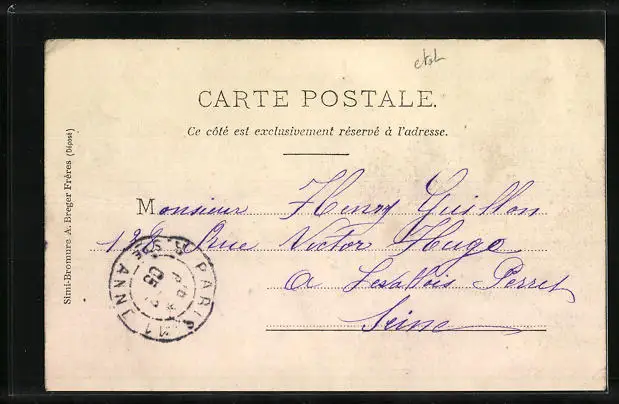 CARTE POSTALE.
Ce côté est exclusivement réservé à l'adresse.
Monsieur Henry Guillon
138 Rue Victor Hugo
à Levallois Perret
Seine
Simi-Bromure A. Breger Frères (Déposé)
PARIS 11
ANNE
05